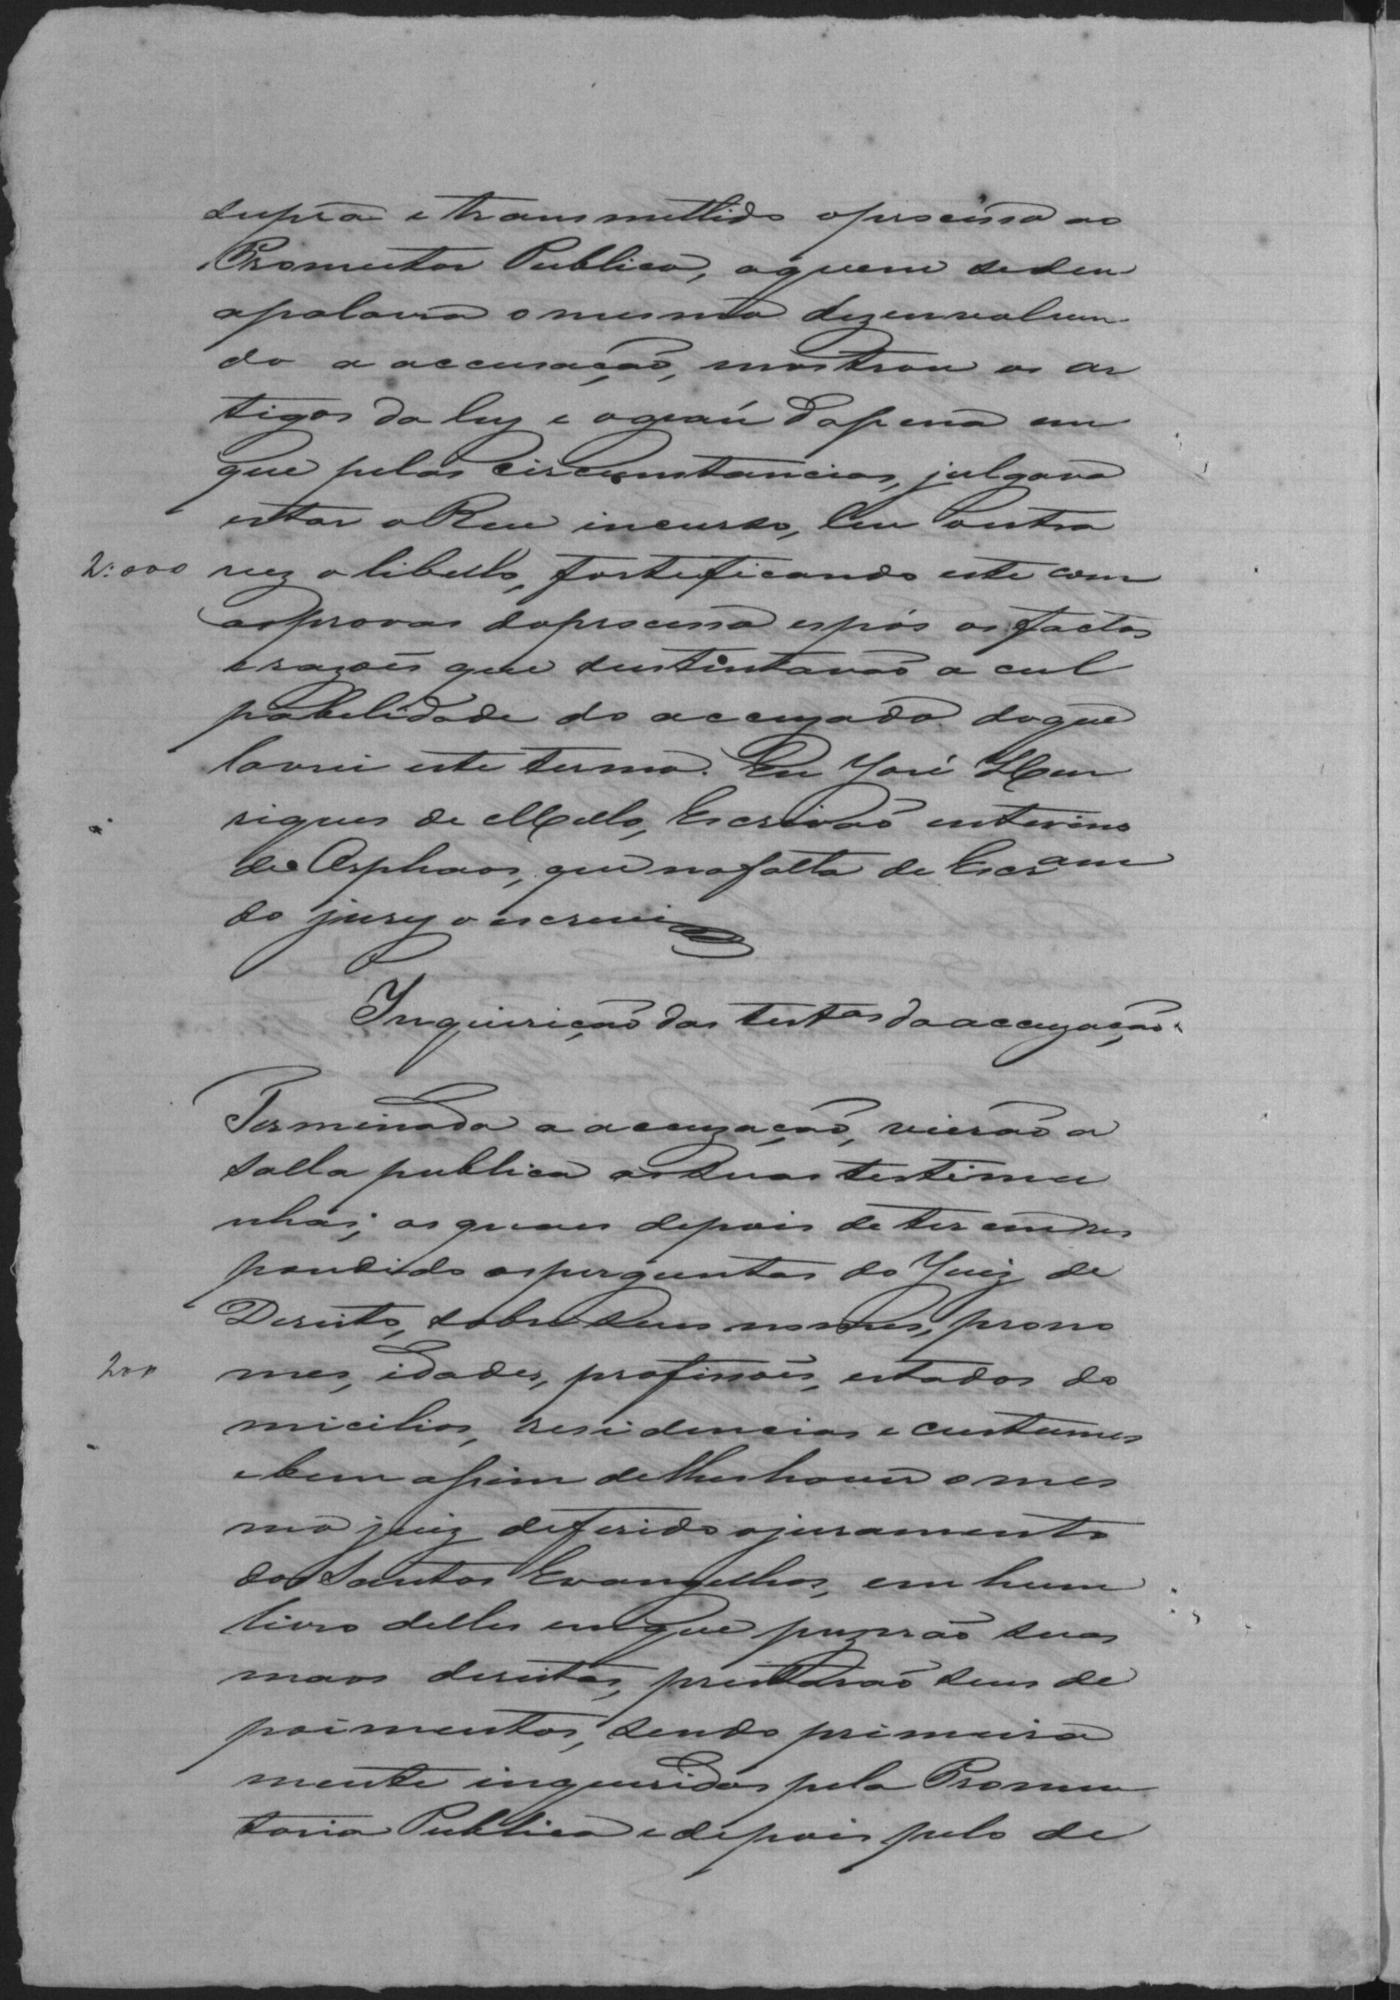 supra e transmettido o processo ao
Promutor Publico, a quem se deu
a palavra o mesmo dezenvolven
do a accusação, mostrou os ar
tigos da ley e o graú da pena em
que pelas circumstancias, julgava
estar o Reu incurso, leu outra
2:000 vez o libello, fortificando este com
as provas do processo e pós os factos
e razões que sustintavão a cul
pabelidade do accuzado do que
lavrei este termo. Eu José Hen
riques de Mello, Escrivão enterino
de Orphaos, que na falta de Escram
do jury o escrevi
Inquirição das testas da accuzação.
Terminada a accuzação, vierão a
salla publica as duas testimu
nhas; as quaes depois de terem res
pondido as perguntas do Juiz de
Dereito, sobre seus nomes, prono
200 mes, idades, profissões, estados do
micilios, residencias e custumes
e bem assim de lhes haver o mes
mo juiz deferido o juramento
dos Santos Evangelhos, em hum
livro delles em que puzerão suas
maos dereitas, prestarão seus de
poimentos, sendo primeira
mente inqueridos pela Promu
toria Publica e depois pelo de